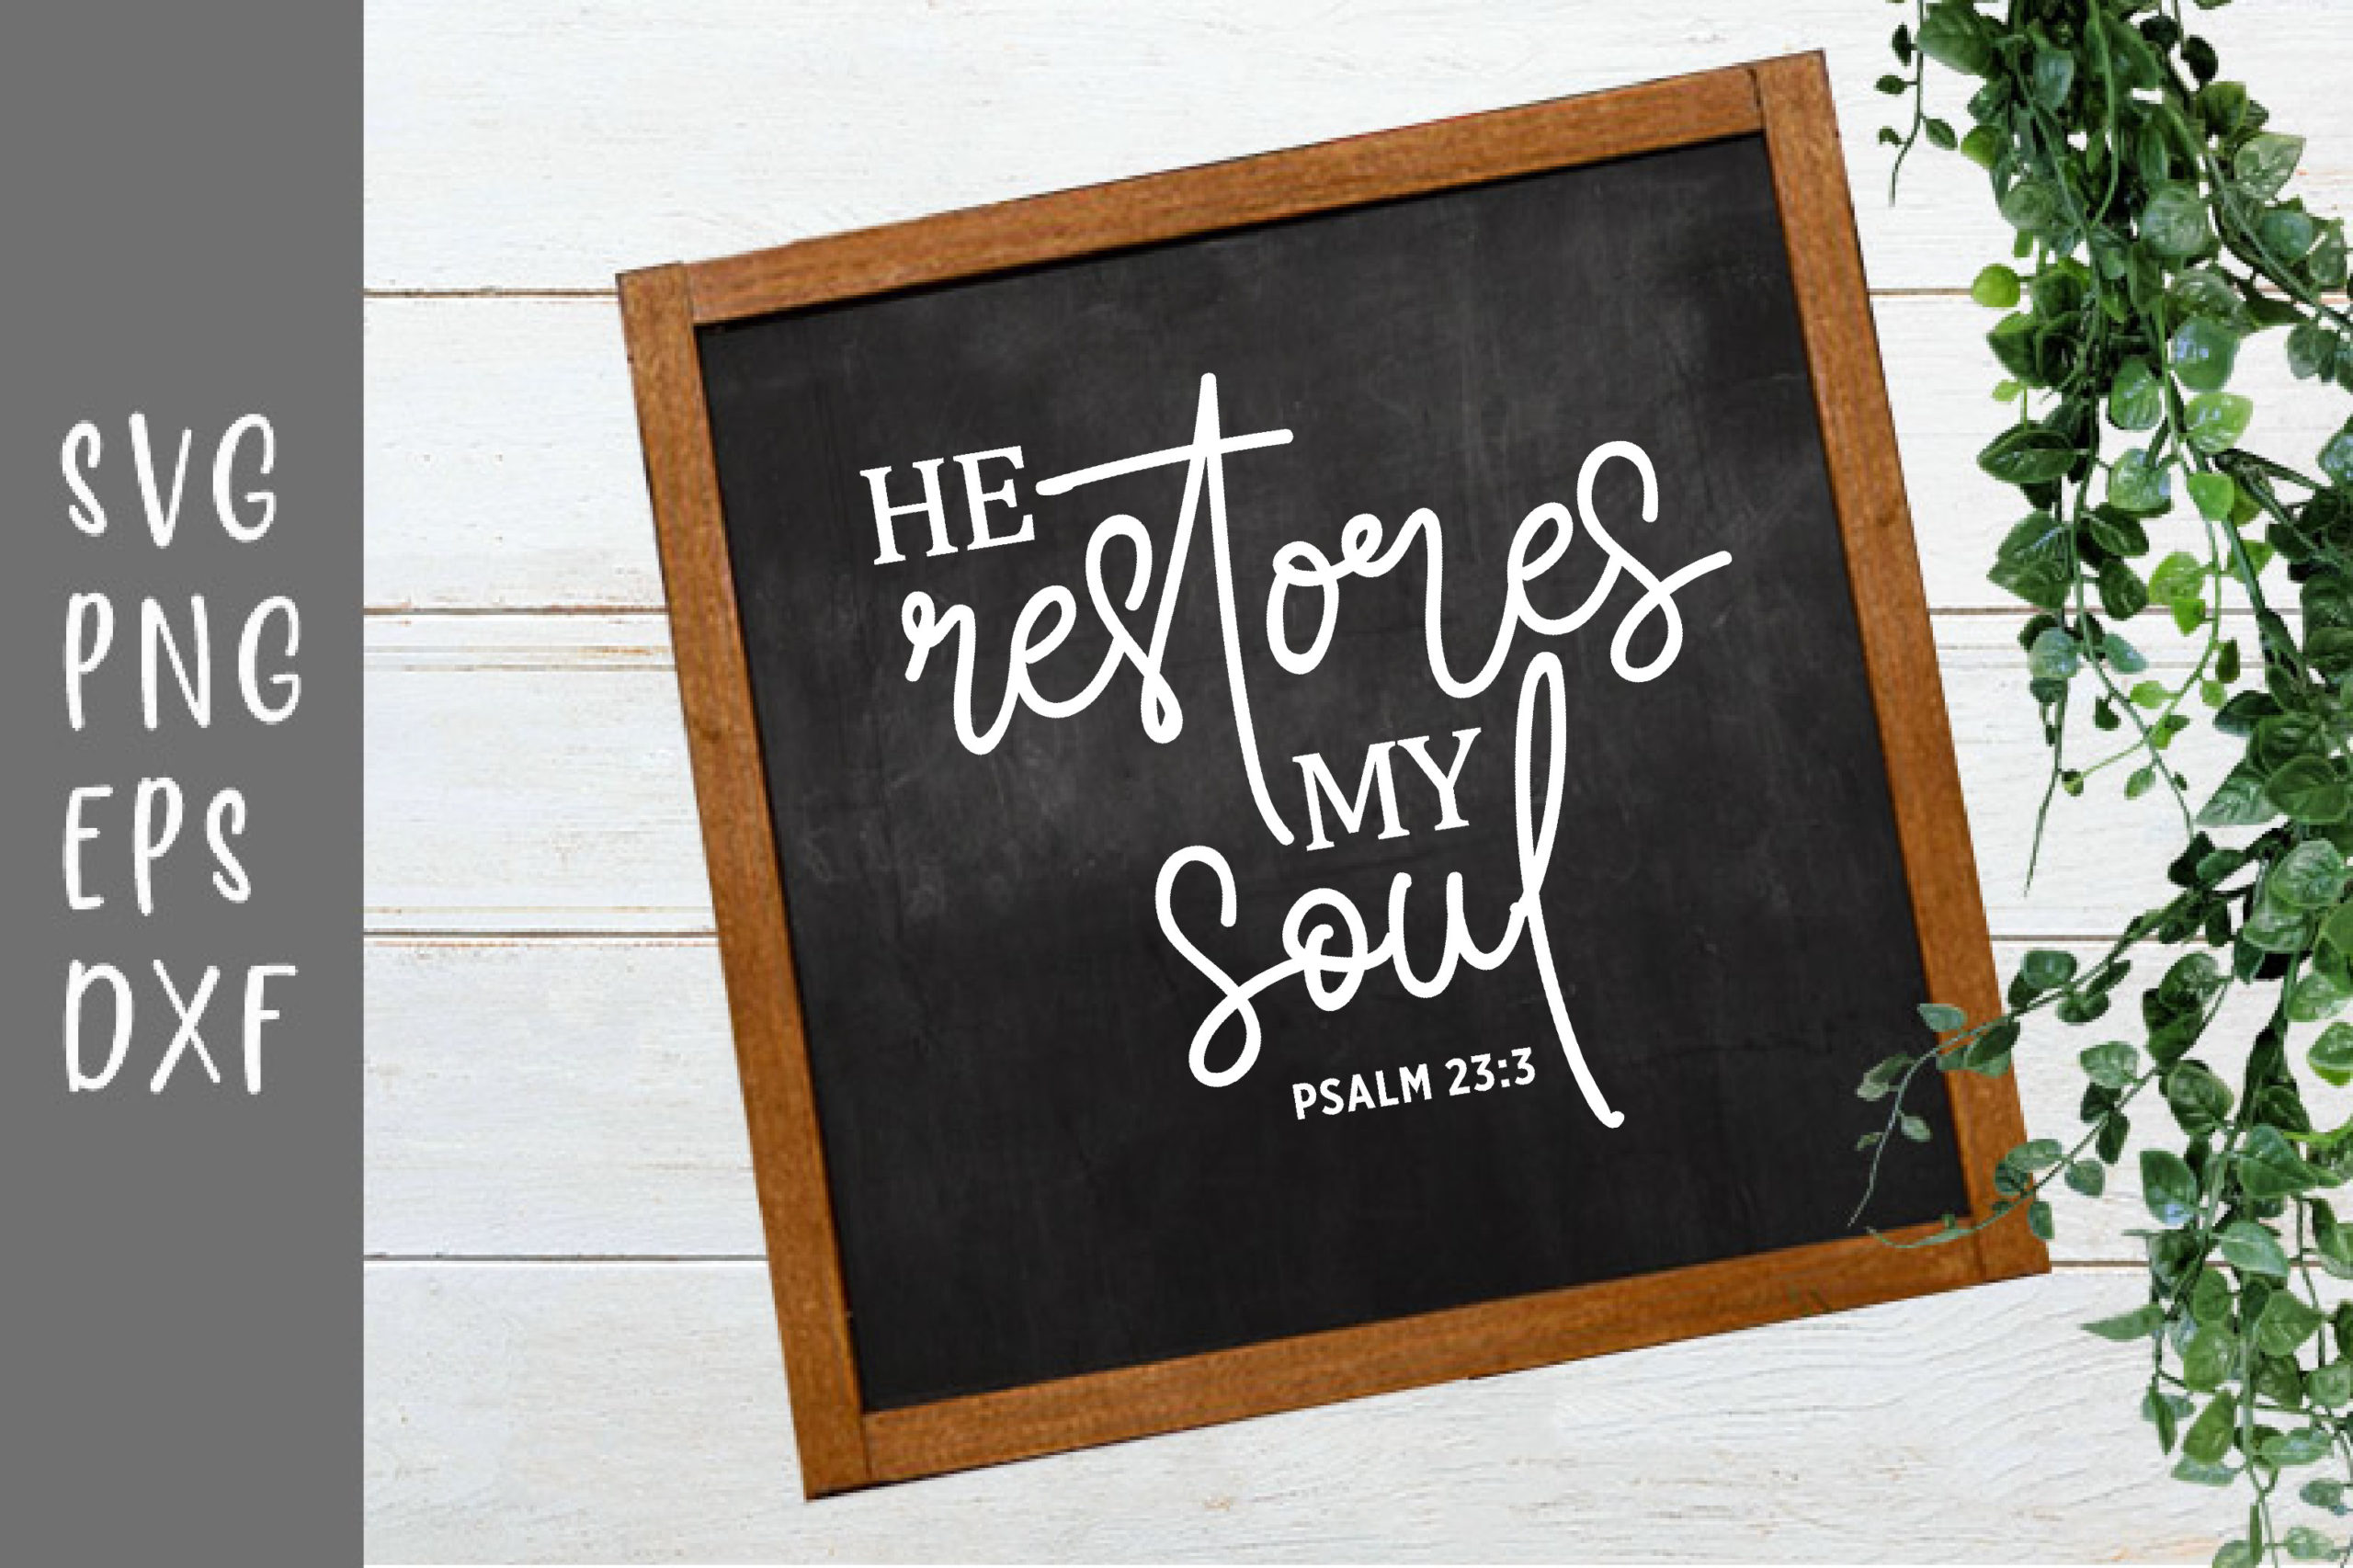 SVG
PNG
EPS
DXF
HE
restores
MY
soul
PSALM 23:3